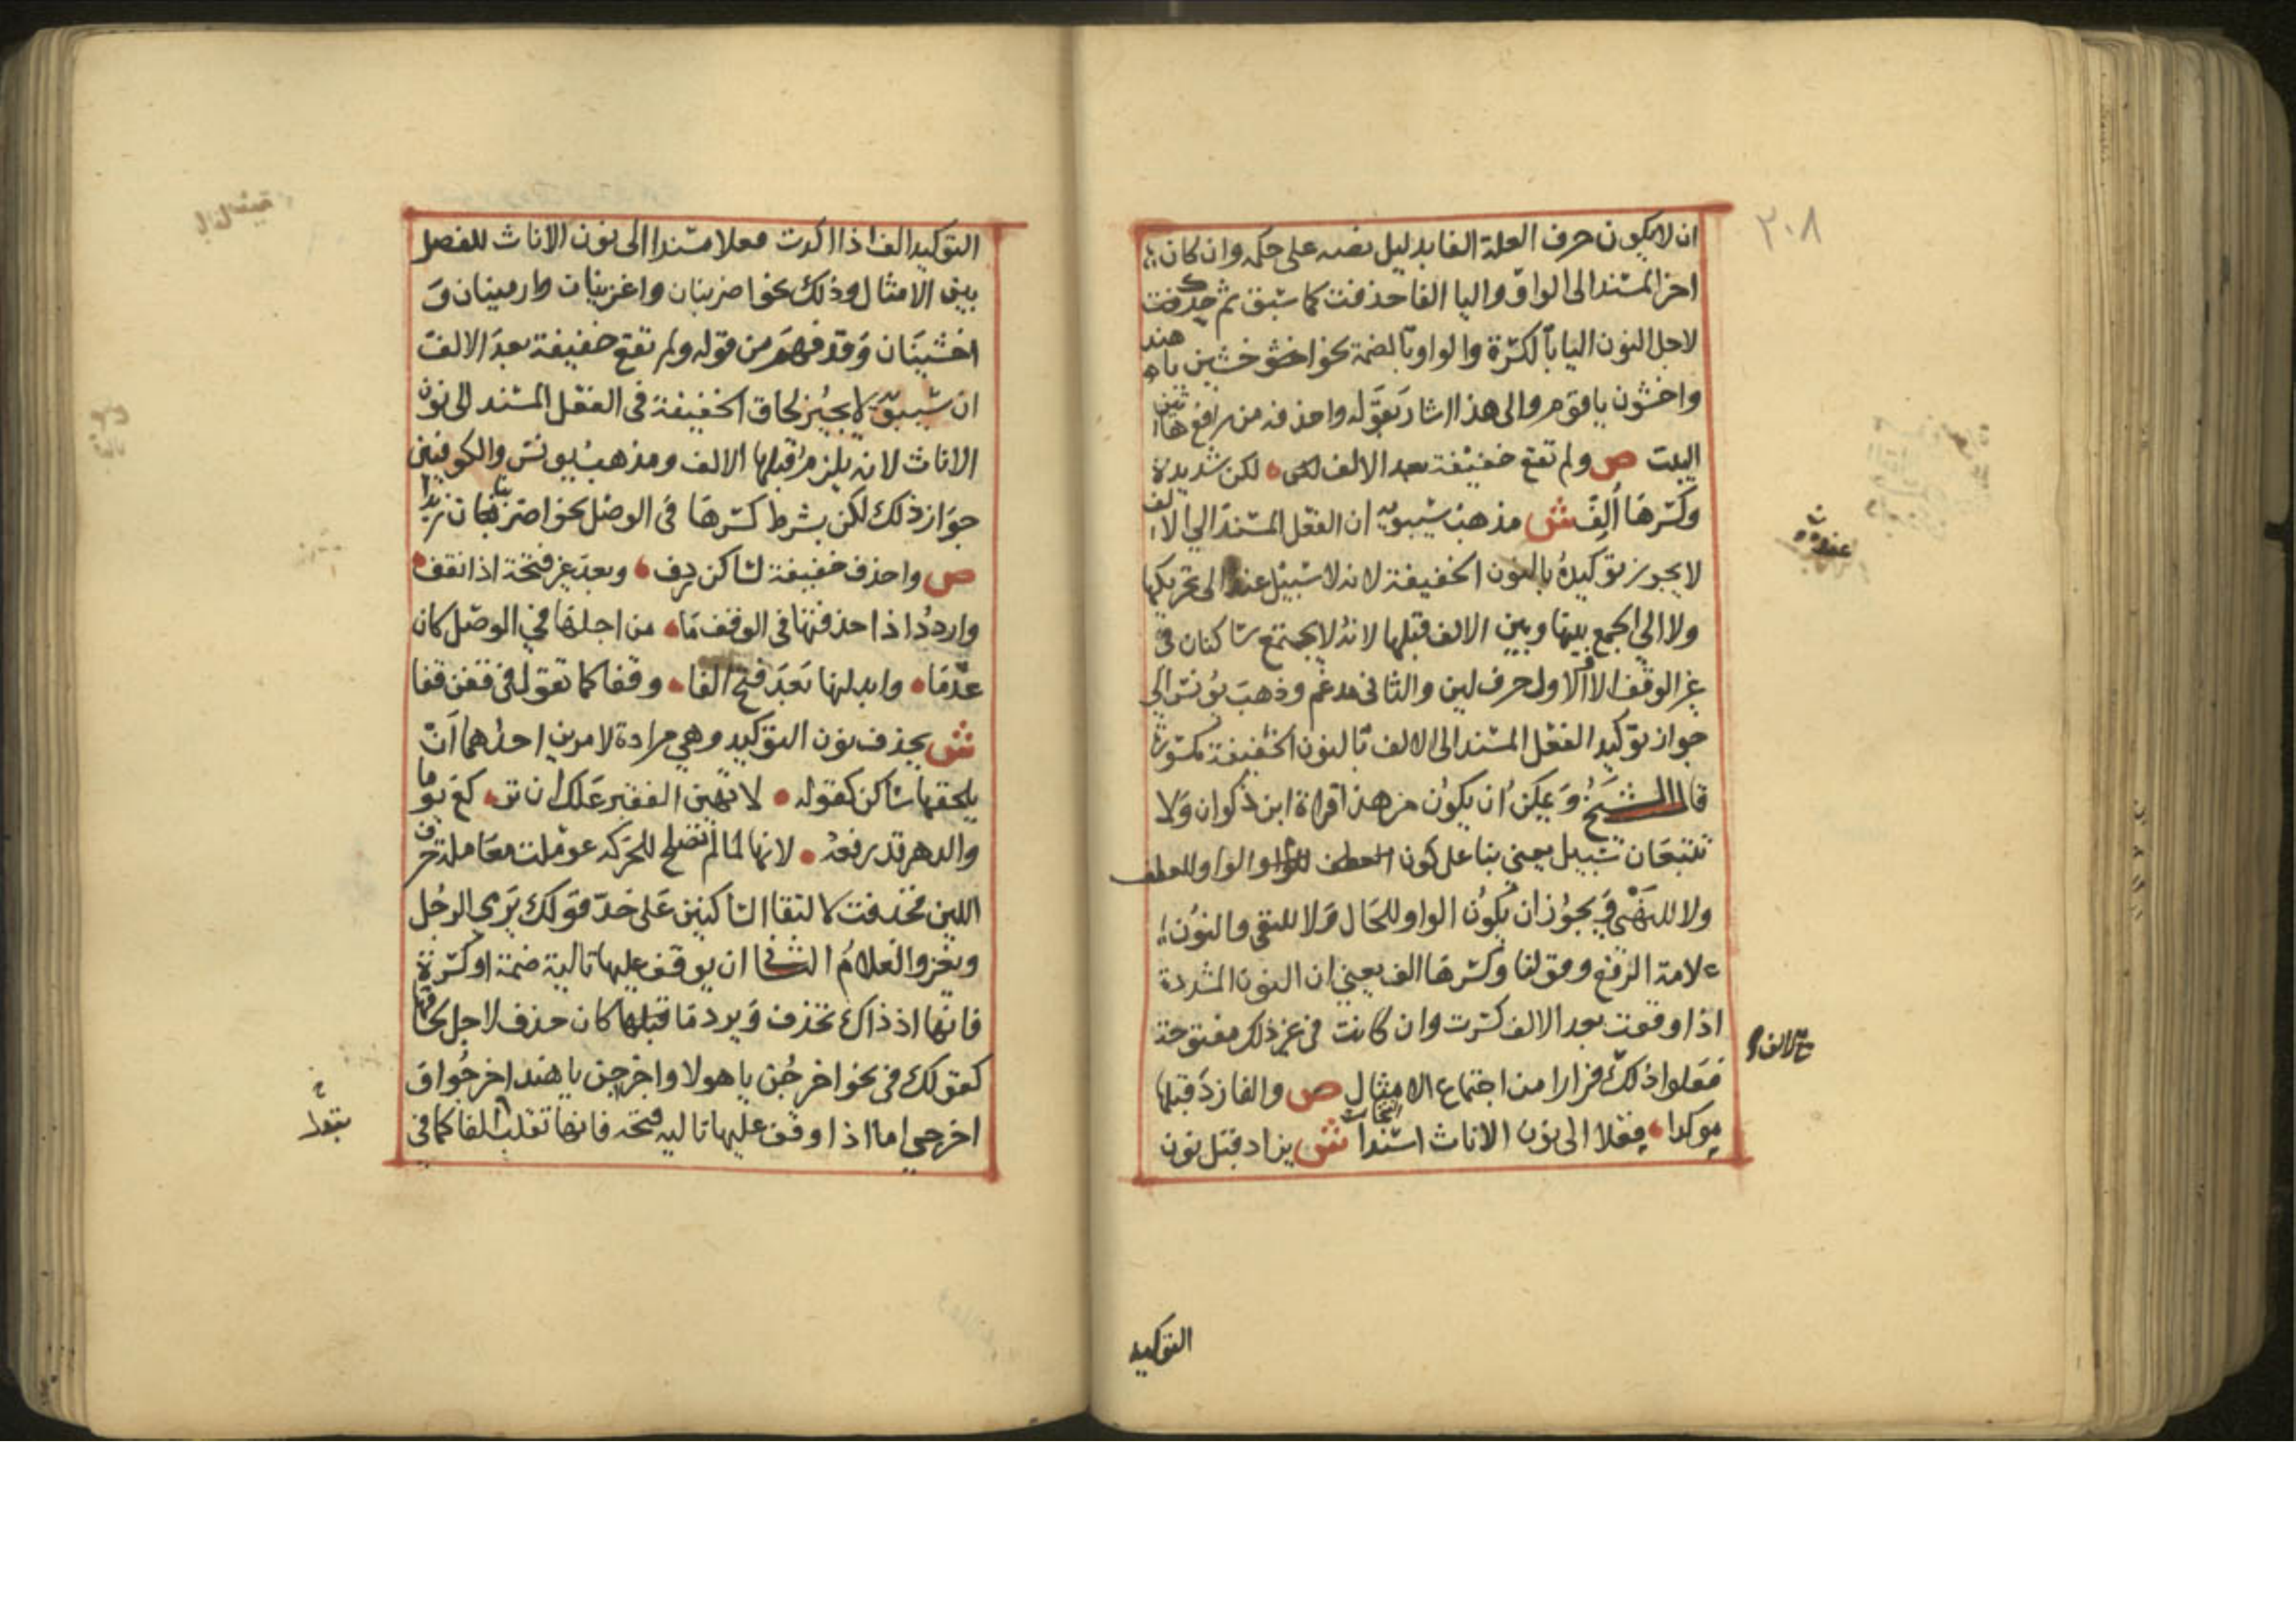 ٢٠٨
ان لا يكون حرف العلة الفا بدليل نصه على حكمه وان كان
اخر المسند الى الواو واليا الفا حذفت كما سبق ثم حركت
لاجل النون اليا بالكسرة والواو بالضمة نحو اخشين يا هند
واخشون يا قوم والى هذا اشار بقوله واحذفه من رافع هاتين
البيت ص ولم تقع خفيفة بعد الالف لكن شديدة
وكسرها ألف ش مذهب سيبويه ان الفعل المسند الي الالف
لا يجوز توكيده بالنون الخفيفة لانه لا سبيل عنده الى تحريكها
ولا الي الجمع بينها وبين الالف قبلها لانه لا يجتمع ساكنان في
غير الوقف الا والاول حرف لين والثاني مدغم وذهب يونس الي
جواز توكيد الفعل المسند الى الالف بالنون الخفيفة مكسورة
قال الشيخ ويمكن ان يكون من هذا قراة ابن ذكوان ولا
تتبعان سبيل يعني بنا على كون الواو للعطف
ولا للنهي ويجوز ان يكون الواو للحال ولا للنفي والنون
علامة الرفع وقولنا وكسرها الف يعني ان النون المشددة
اذا وقعت بعد الالف كسرت وان كانت في غير ذلك مفتوحة
فعلوا ذلك فرارا من اجتماع الامثال ص والفا زد قبلها
موكدا فعلا الى نون الاناث اسندا ش يزاد قبل نون
التوكيد
التوكيد الف اذا اكدت فعلا مسندا الى نون الاناث للفصل
بين الامثال وذلك نحو اضربنان واغزينان وارمينان و
اخشينان وقد فهم من قوله ولم تقع خفيفة بعد الالف
ان سيبويه لا يجيز لحاق الخفيفة في الفعل المسند الى نون
الاناث لانه يلزم قبلها الالف ومذهب يونس والكوفيين
جواز ذلك لكن بشرط كسرها في الوصل نحو اضربنان زيدا
ص واحذف خفيفة لساكن ردف وبعد غير فتحة اذا تقف
واردد اذا حذفتها في الوقف ما من اجلها في الوصل كان
عدما وابدلنها بعد فتح الفا وقفا كما تقول في قفن قفا
ش يحذف نون التوكيد وهي مرادة لامرين احدهما ان
يلحقها ساكن كقوله لا تهين الفقير علك ان تركع يوما
والدهر قد رفعه لانها لما لم تصلح للحركه عوملت معاملة حرف
اللين فحذفت لالتقا الساكنين على حد قولك يرى الرجل
ويغزوا الغلام الثاني ان يوقف عليها تالية ضمة او كسرة
فانها اذ ذاك تحذف ويرد ما قبلها كان حذف لاجل لحاقها
كقولك في نحو اخرجن يا هولا واخرجن يا هند اخرجوا و
اخرجي اما اذا وقف عليها تاليه فتحه فانها تقلب الفا كما في